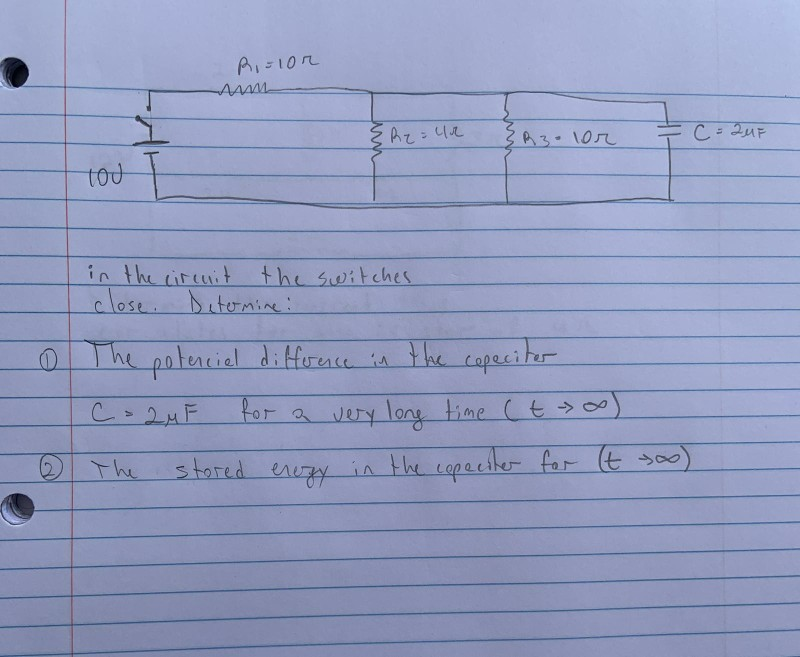 R1=10Ω
R2=4Ω
R3=10Ω
C=2μF
10V
in the circuit the switches
close. Determine:
① The potencial difference in the capaciter
C=2μF for a very long time (t→∞)
② The stored enegy in the capaciter for (t→∞)